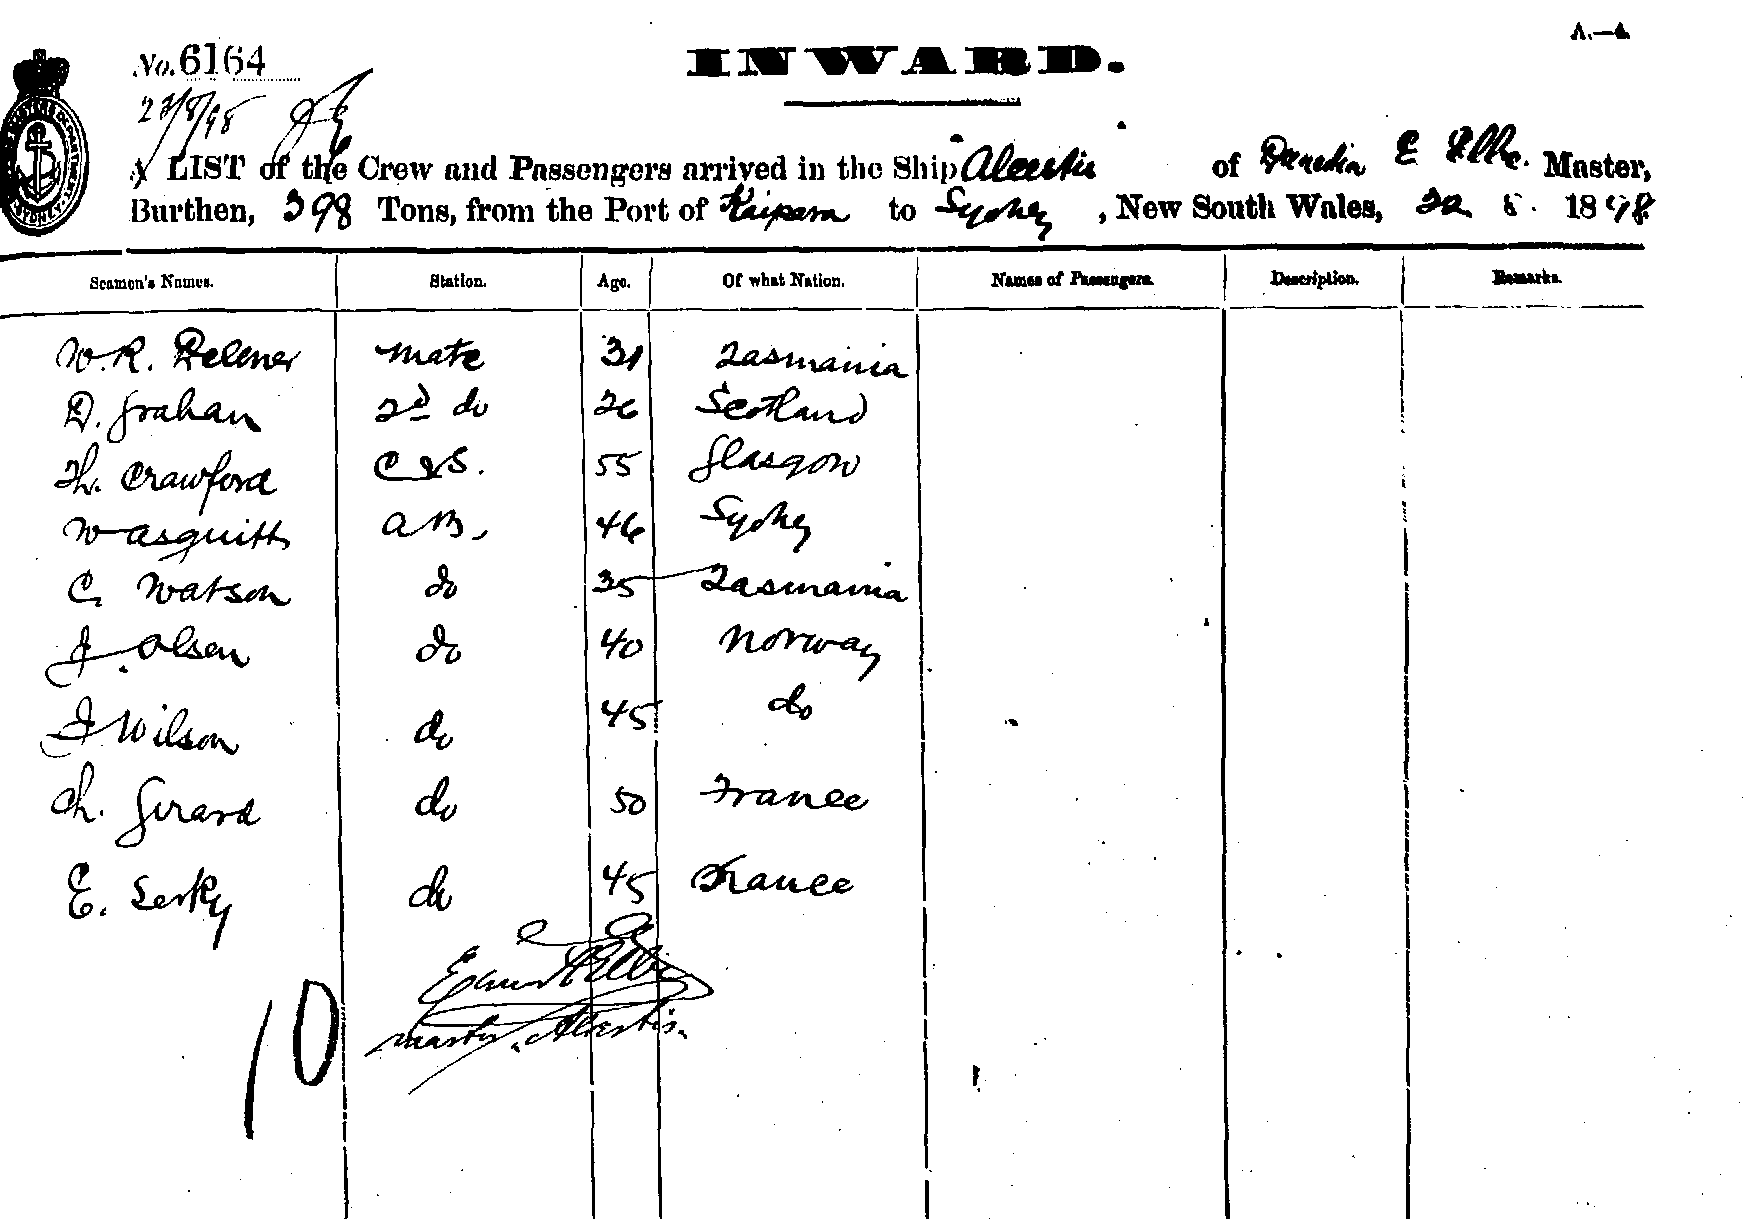 A.—4
No. 6164
INWARD.
23/8/98
A LIST of the Crew and Passengers arrived in the Ship Alcestis of Dunedin E Master,
Burthen, 398 Tons, from the Port of Kaipara to Sydney, New South Wales, 22 8. 1898
Seamen's Names. Station. Age. Of what Nation. Names of Passengers. Description. Remarks.
W. R. mate 31 Tasmania
D. Graham 2d do 26 Scotland
Th. Crawford C & S. 55 Glasgow
W Asquith AB, 46 Sydney
C. Watson do 35 Tasmania
J. Olsen do 40 Norway
J Wilson do 45 do
Ch. Girard do 50 France
E. do 45 France
master Alcestis.
10